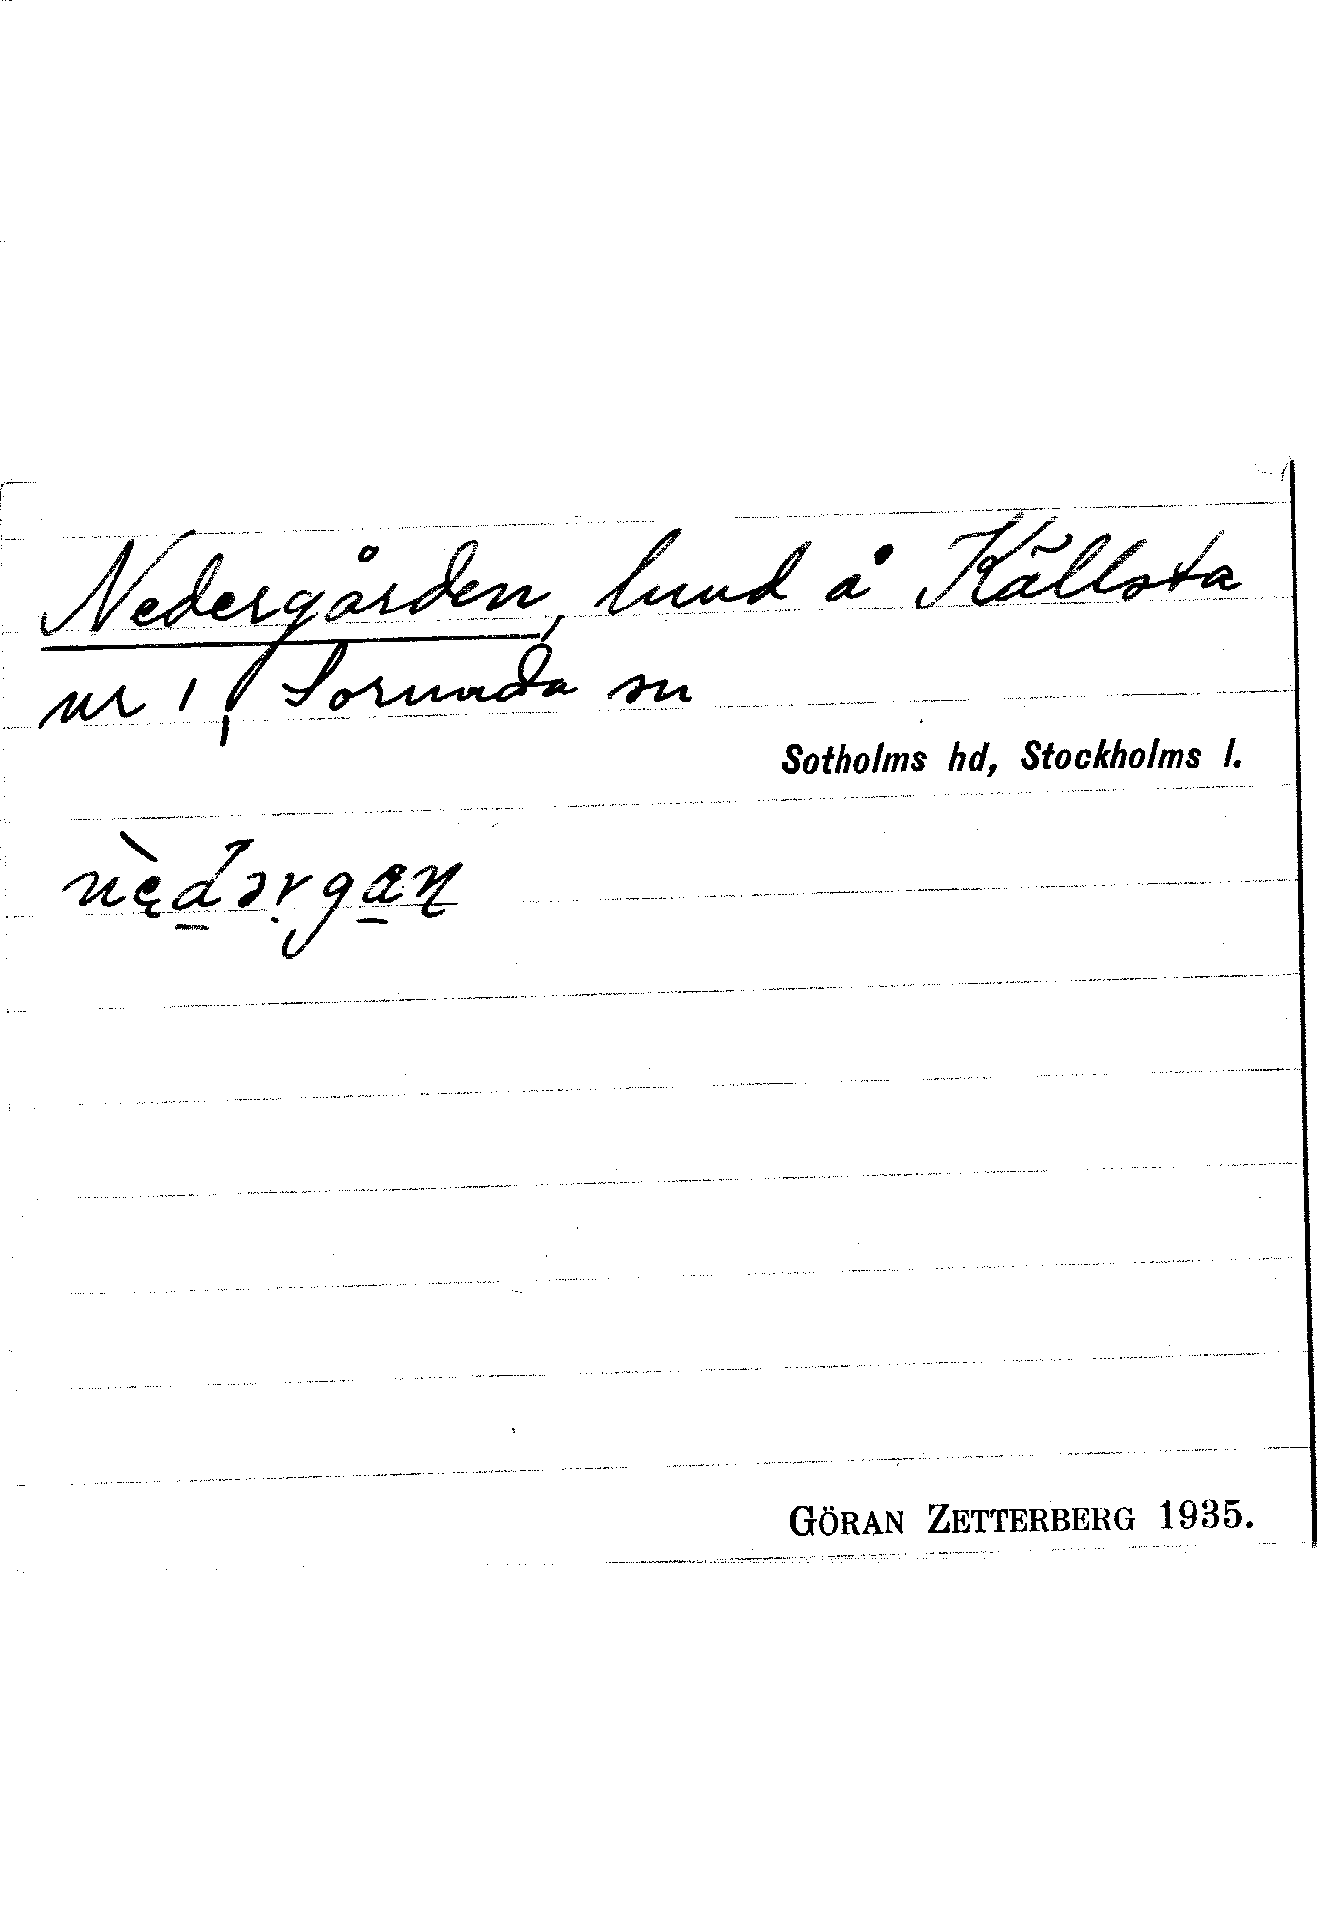 Nedergården, lund å Källsta
nr 1, Sorunda sn
Sotholms hd, Stockholms l.
nè̜d̲ərga̲ɳ
GÖRAN ZETTERBERG 1935.